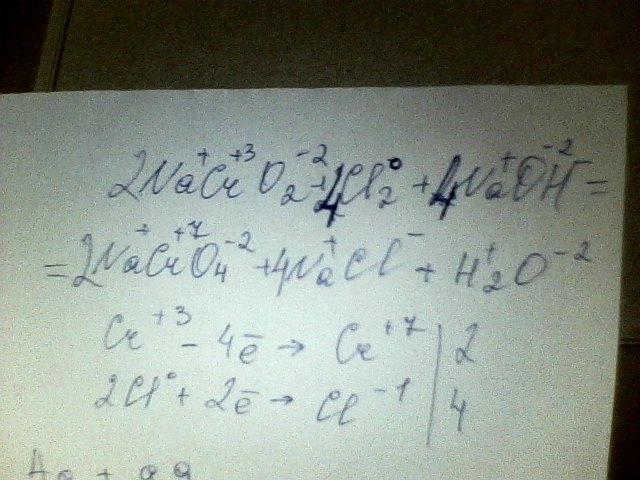 2Na⁺Cr⁺³O₂⁻² + 4Cl₂⁰ + 4Na⁺O⁻²H =
= 2Na⁺Cr⁺⁷O₄⁻² + 4Na⁺Cl⁻ + H₂⁺O⁻²
Cr⁺³ - 4ē → Cr⁺⁷ | 2
2Cl⁰ + 2ē → Cl⁻¹ | 4